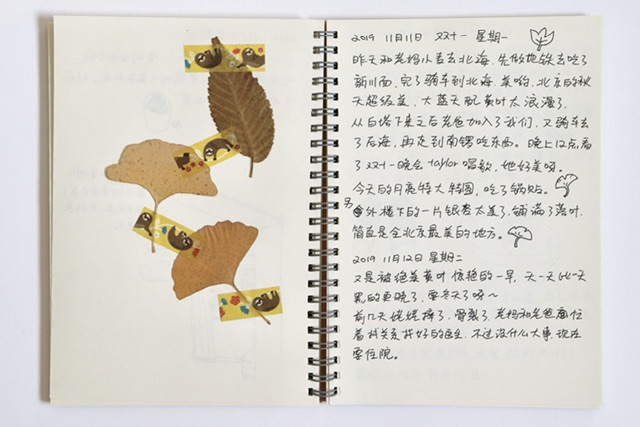 2019 11月11日 双十一 星期一
昨天和老妈小舌去北海，先做地铁去吃了
新川面，完了骑车到北海，美哟，北京的秋
天超级蓝，大蓝天配黄叶太浪漫了，
从白塔下来之后老爸加入了我们，又骑车去
了后海，再走到南锣吃东西。晚上12点看
了双十一晚会 taylor 唱歌，她好美呀。
今天的月亮特大特圆，吃了锅贴。
另外楼下的一片银杏太美了，铺满了落叶，
简直是全北京最美的地方。
2019 11月12日 星期二
又是被绝美黄叶惊艳的一早，天一天比一天
黑的更晚了，要冬天了呀～
前几天姥姥摔了，骨裂了，老妈和老爸
着找关系找好的医生，不过没什么大事，现在
要住院。